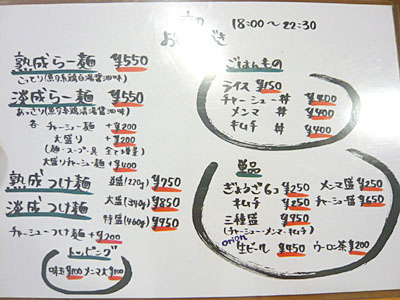 夜の
おしながき
18:00〜22:30
熟成らー麺 ¥550
こってり(魚介系鶏白湯醤油味)
淡成らー麺 ¥550
あっさり(魚介系鶏清湯醤油味)
各 チャーシュー麺 +¥200
大盛り +¥200
(麺・スープ・具 全て増量)
大盛りチャーシュー麺 +¥400
熟成つけ麺
淡成つけ麺
並盛(220g) ¥750
大盛(340g) ¥850
特盛(460g) ¥950
チャーシューつけ麺 +¥200
トッピング
味玉 ¥100 メンマ ¥100
ごはんもの
ライス ¥150
チャーシュー丼 ¥400
メンマ 丼 ¥400
キムチ 丼 ¥400
単品
ぎょうざ6コ ¥250
キムチ ¥250
三種盛 ¥750
(チャーシュー・メンマ・キムチ)
メンマ盛 ¥250
チャーシュー盛 ¥650
orion
生ビール ¥450
ウーロン茶 ¥200